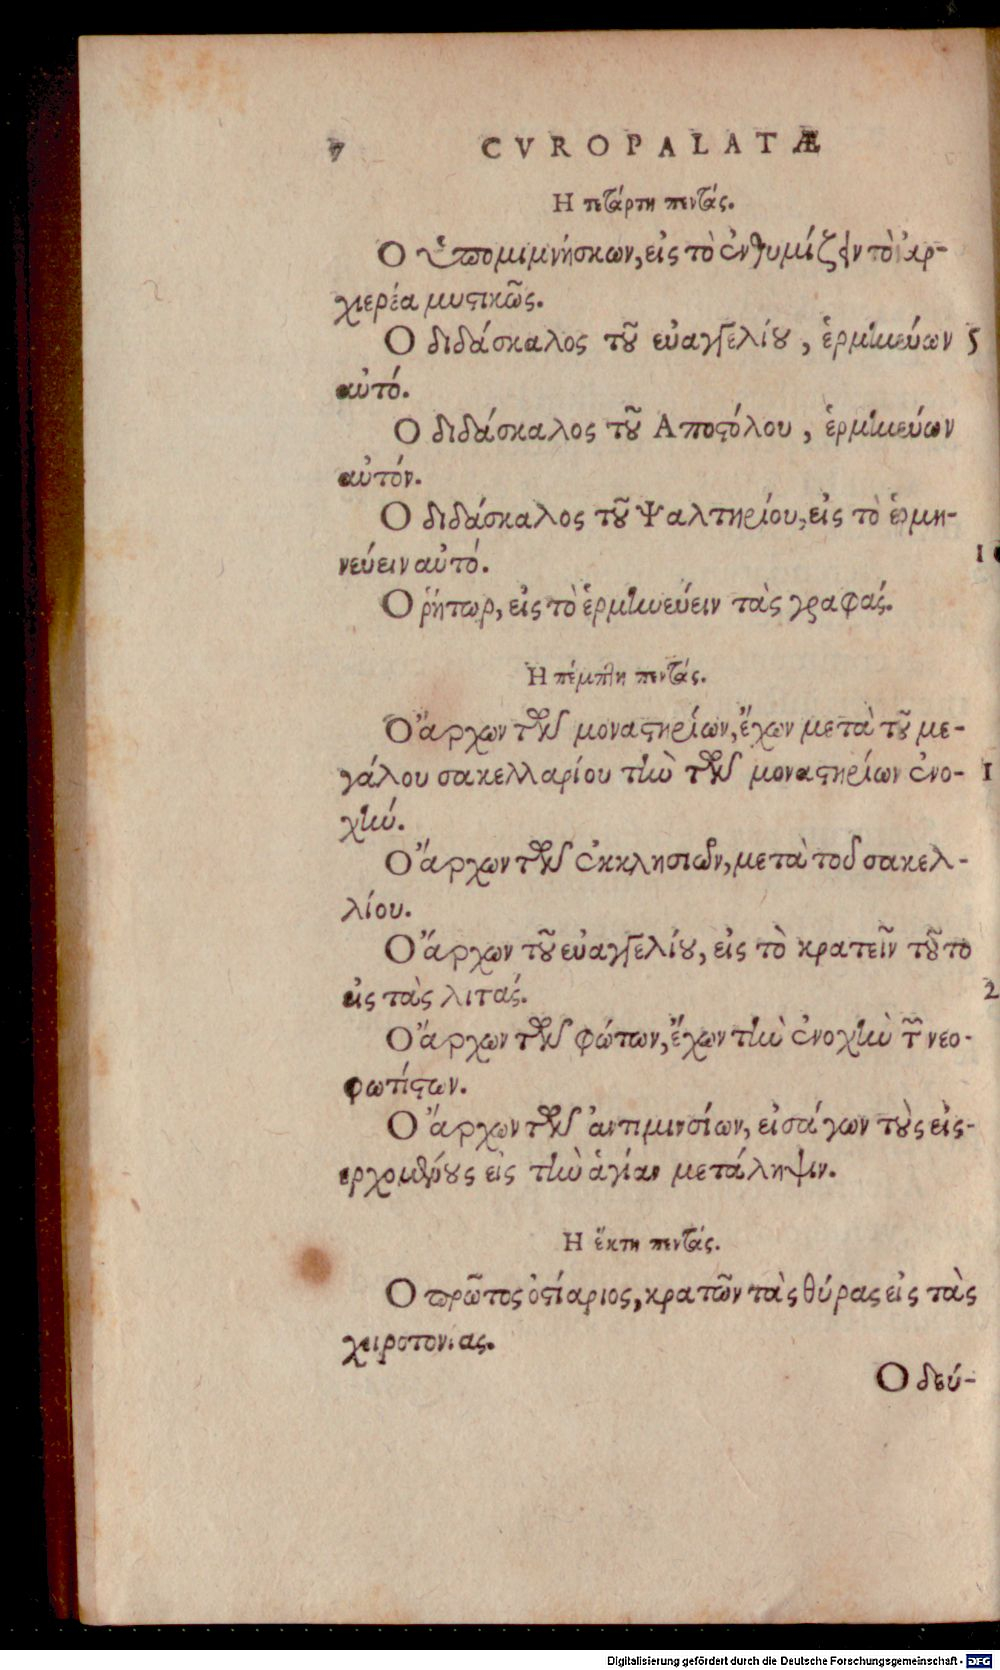 4 CVROPALATÆ
Η τετάρτη πεντάς.
Ο ὑπομιμνήσκων, εἰς τὸ ἐνθυμίζειν τὸ ἀρ-
χιερέα μυστικῶς.
Ο διδάσκαλος τοῦ εὐαγγελίου, ἑρμηνεύων 5
αὐτό.
Ο διδάσκαλος τοῦ Αποστόλου, ἑρμηνεύων
αὐτόν.
Ο διδάσκαλος τοῦ Ψαλτηρίου, εἰς τὸ ἑρμη-
νεύειν αὐτό. 10
Ο ῥήτωρ, εἰς τὸ ἑρμηνεύειν τὰς γραφάς.
Η πέμπτη πεντάς.
Ὁ ἄρχων τῶν μοναστηρίων, ἔχων μετὰ τοῦ με-
γάλου σακελλαρίου τὴν τῶν μοναστηρίων ἐνο- 1
χήν.
Ο ἄρχων τῶν ἐκκλησιῶν, μετὰ τοῦ σακελ-
λίου.
Ο ἄρχων τοῦ εὐαγγελίου, εἰς τὸ κρατεῖν τοῦτο
εἰς τὰς λιτάς. 2
Ο ἄρχων τῶν φώτων, ἔχων τὴν ἐνοχὴν τῶν νεο-
φωτίστων.
Ο ἄρχων τῶν ἀντιμινσίων, εἰσάγων τοὺς εἰς-
ερχομένους εἰς τὴν ἁγίαν μετάληψιν.
Η ἕκτη πεντάς.
Ο πρῶτος ὀστιάριος, κρατῶν τὰς θύρας εἰς τὰς
χειροτονίας.
Ο δεύ-
Digitalisierung gefördert durch die Deutsche Forschungsgemeinschaft - DFG